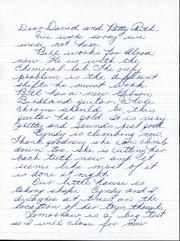 Dear David and Betty Ruth,
We were sorry we
were not here.
Bill works for Alcoa
now. He is with the
Chemical lab. The one
problem is the different
shifts he must work.
Bill has a new Gibson
Birdland guitar. Where
chrome should be this
guitar has gold. It is very
pretty and sounds real good.
Cyndy is climbing now
thank goodness she can climb
down too. She is cutting her
back teeth now and it
seems like most of it
is done at night.
Our little house is
taking shape. Cyndy and I
disagree at times on the
location of her
Tomorrow is a big test
so I will close for now